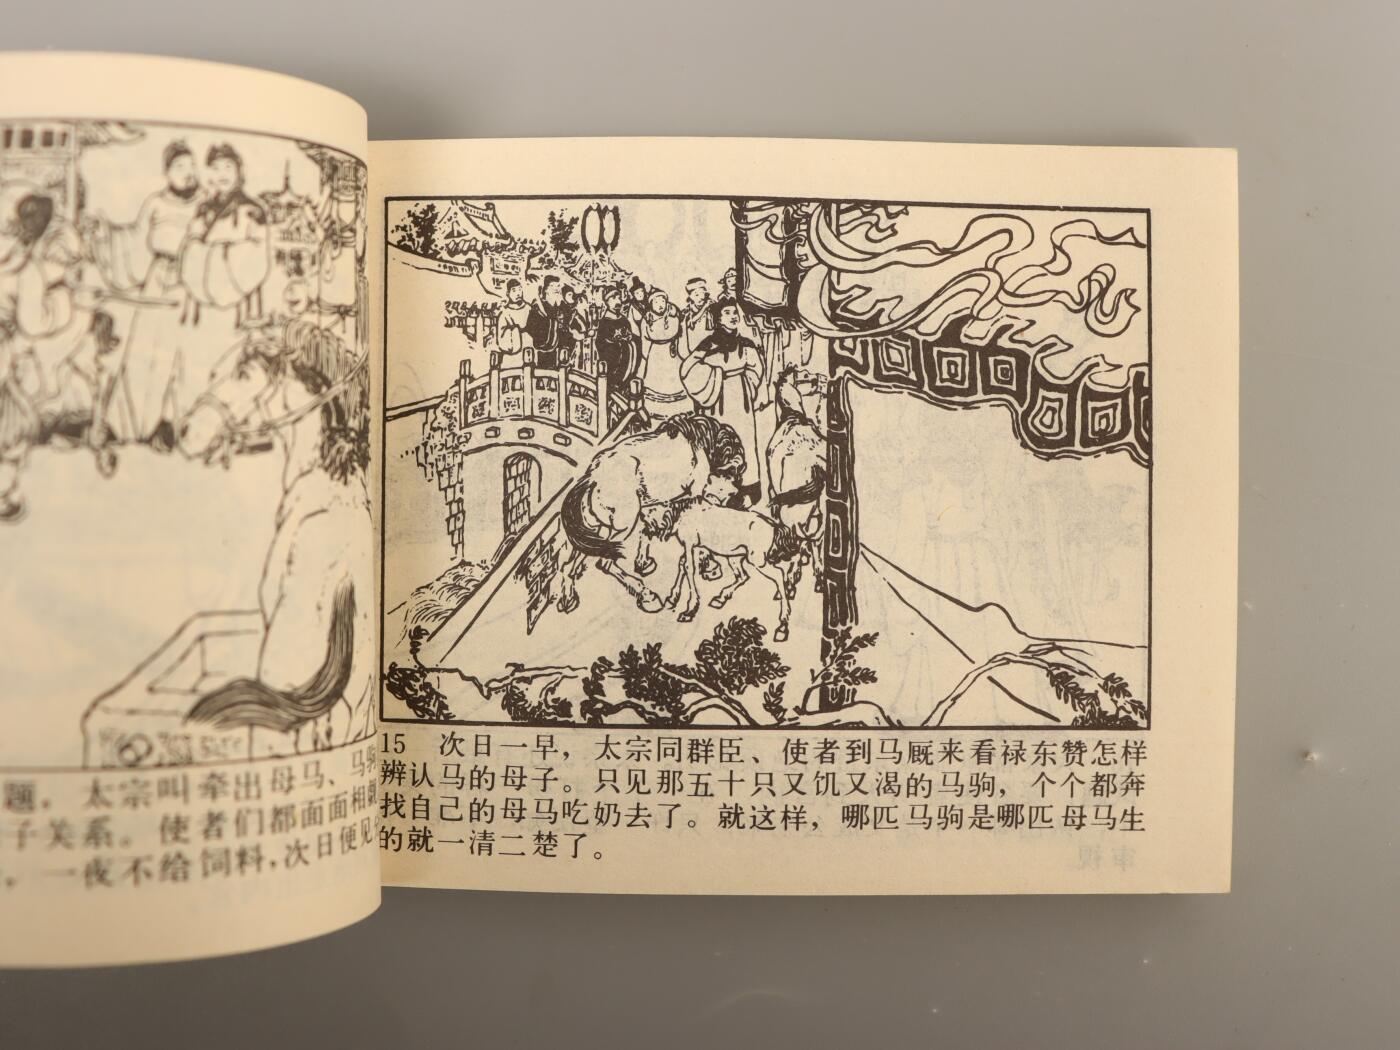 题，太宗叫牵出母马、马驹
子关系。使者们都面面相觑
，一夜不给饲料，次日便见
15 次日一早，太宗同群臣、使者到马厩来看禄东赞怎样
辨认马的母子。只见那五十只又饥又渴的马驹，个个都奔
找自己的母马吃奶去了。就这样，哪匹马驹是哪匹母马生
的就一清二楚了。